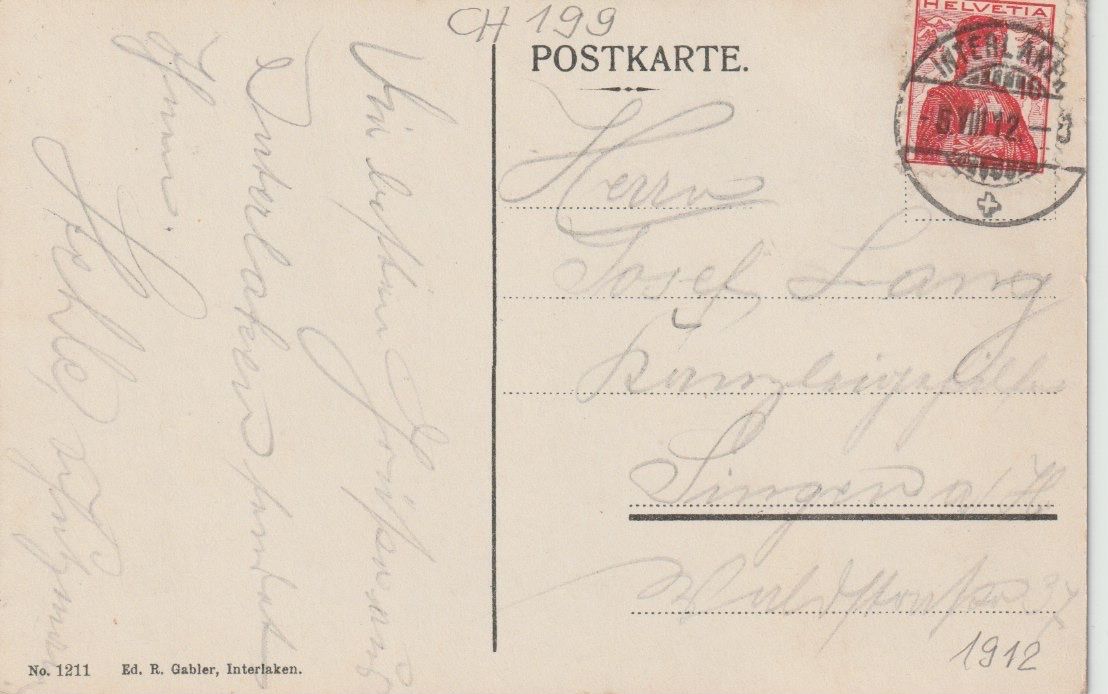 CH 199
POSTKARTE.
HELVETIA
INTERLAKEN
-5.VIII.12.-9
Herrn
Josef Lang
Kanzleigehilfe
Singen a/H
Waldstraße 37
1912
Die besten Grüße aus
Interlaken sendet
Ihnen
No. 1211 Ed. R. Gabler, Interlaken.